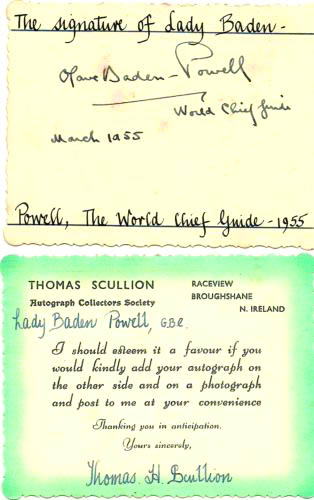 The signature of Lady Baden-
Olave Baden-Powell
World Chief Guide
March 1955
Powell, The World Chief Guide - 1955
THOMAS SCULLION
Autograph Collectors Society
RACEVIEW
BROUGHSHANE
N. IRELAND
Lady Baden Powell, G.B.E.
I should esteem it a favour if you
would kindly add your autograph on
the other side and on a photograph
and post to me at your convenience
Thanking you in anticipation.
Yours sincerely,
Thomas. H. Scullion